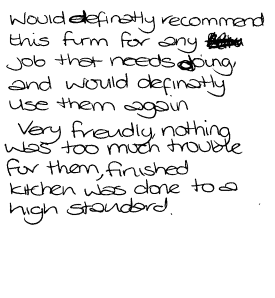 Would definatly recommend
this firm for any
job that needs doing,
and would definatly
use them again
Very freindly, nothing
was too much trouble
for them, finished
kitchen was done to a
high standard.